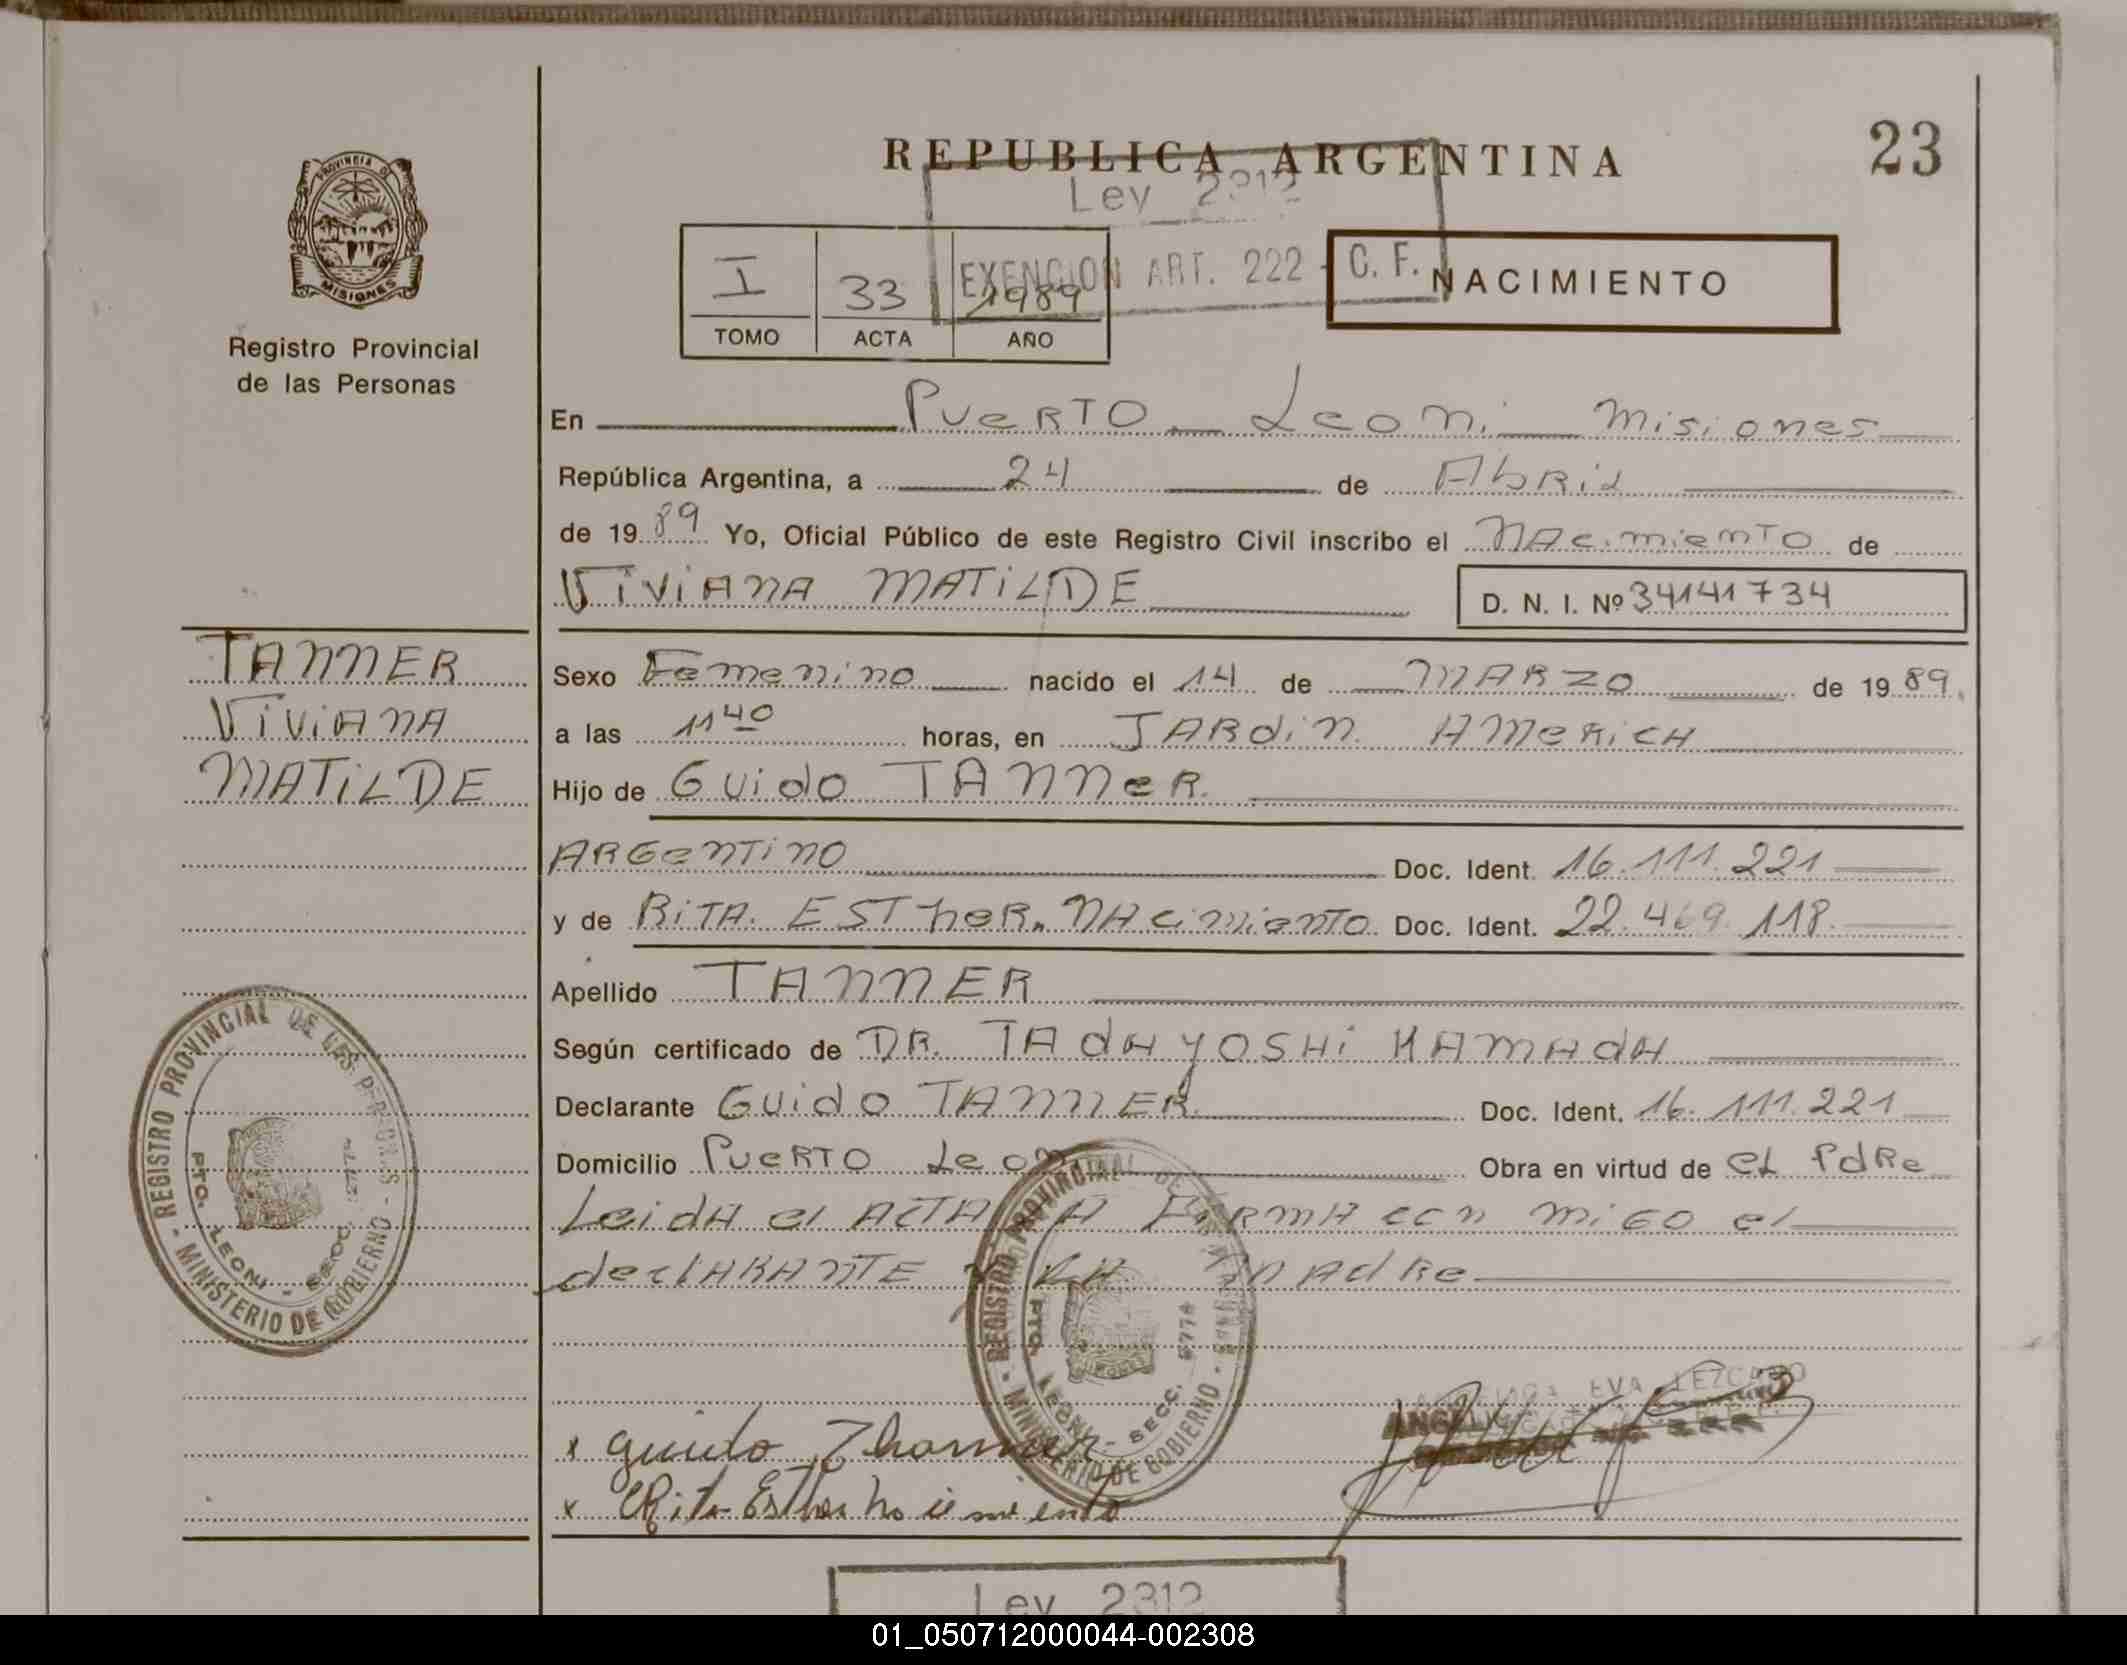 REPUBLICA ARGENTINA
23
Ley 2312
EXENCION ART. 222 - C. F.
PROVINCIA DE
MISIONES
Registro Provincial
de las Personas
I 33 1989
TOMO ACTA AÑO
NACIMIENTO
En Puerto Leoni Misiones
República Argentina, a 24 de Abril
de 1989 Yo, Oficial Público de este Registro Civil inscribo el Nacimiento de
VIVIANA MATILDE
D. N. I. Nº 34141734
TANNER
VIVIANA
MATILDE
Sexo Femenino nacido el 14 de MARZO de 1989.
a las 11 40 horas, en JARdiN AMERICA
Hijo de Guido TANNER.
ARGENTINO Doc. Ident. 16.111.221
y de RITA. ESTHER. NAcimiento Doc. Ident. 22.469.118.
Apellido TANNER
Según certificado de DR. TADAYOSHI KAMADA
Declarante Guido TANNER. Doc. Ident. 16.111.221
Domicilio Puerto Leoni Obra en virtud de el PdRe
Leida el ACTA LA FIRMA con migo el
declARANTE y LA MAdRe
- REGISTRO PROVINCIAL DE LAS PERSONAS -
MINISTERIO DE GOBIERNO
PTO. LEONI - SECC.
- REGISTRO PROVINCIAL DE LAS PERSONAS -
MINISTERIO DE GOBIERNO
PTO. LEONI - SECC.
EVA LEZCANO
x guido Thanner
x Rita Esther nacimiento
Ley 2312
01_050712000044-002308